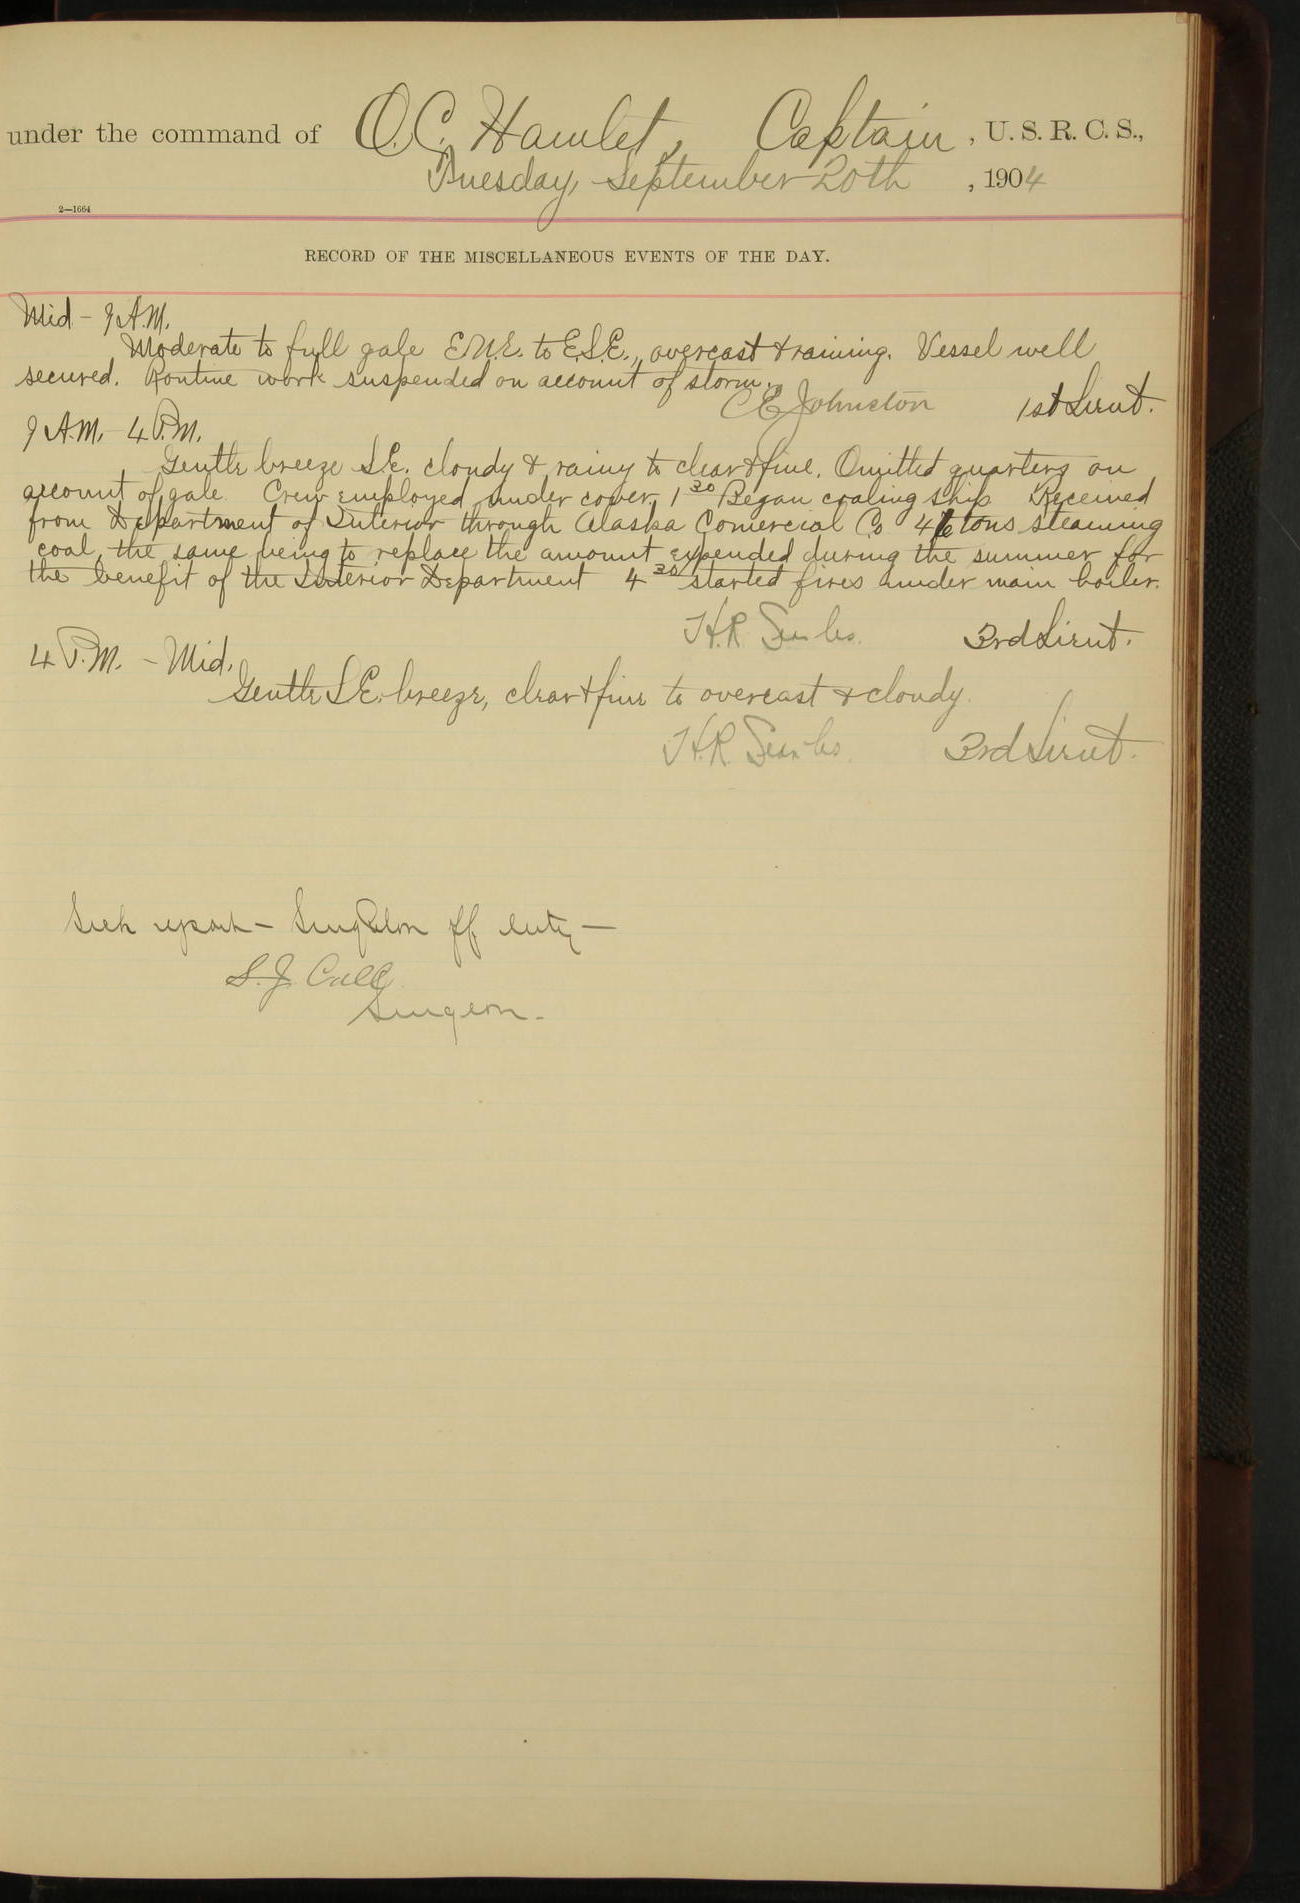 under the command of O.C. Hamlet, Captain, U.S.R.C.S.,
Tuesday, September 20th, 1904
2—1664
RECORD OF THE MISCELLANEOUS EVENTS OF THE DAY.
Mid - 9 A.M.
Moderate to full gale E.N.E. to E.S.E., overcast & raining. Vessel well
secured. Routine work suspended on account of storm.
C E Johnston 1st Lieut.
9 A.M. - 4 P.M.
Gentle breeze S.E. cloudy & rainy to clear & fine. Omitted quarters on
account of gale. Crew employed under cover, 1 30 Began coaling ship Received
from Department of Interior through Alaska Comercial Co tons steaming
coal, the same being to replace the amount expended during the summer for
the benefit of the Interior Department 4 30 started fires under main boiler.
H.R. 3rd Lieut.
4 P.M. - Mid.
Gentle S.E. breeze, clear & fine to overcast & cloudy.
H.R. 3rd Lieut.
Sick report - Singleton off duty -
S.J. Call
Surgeon.